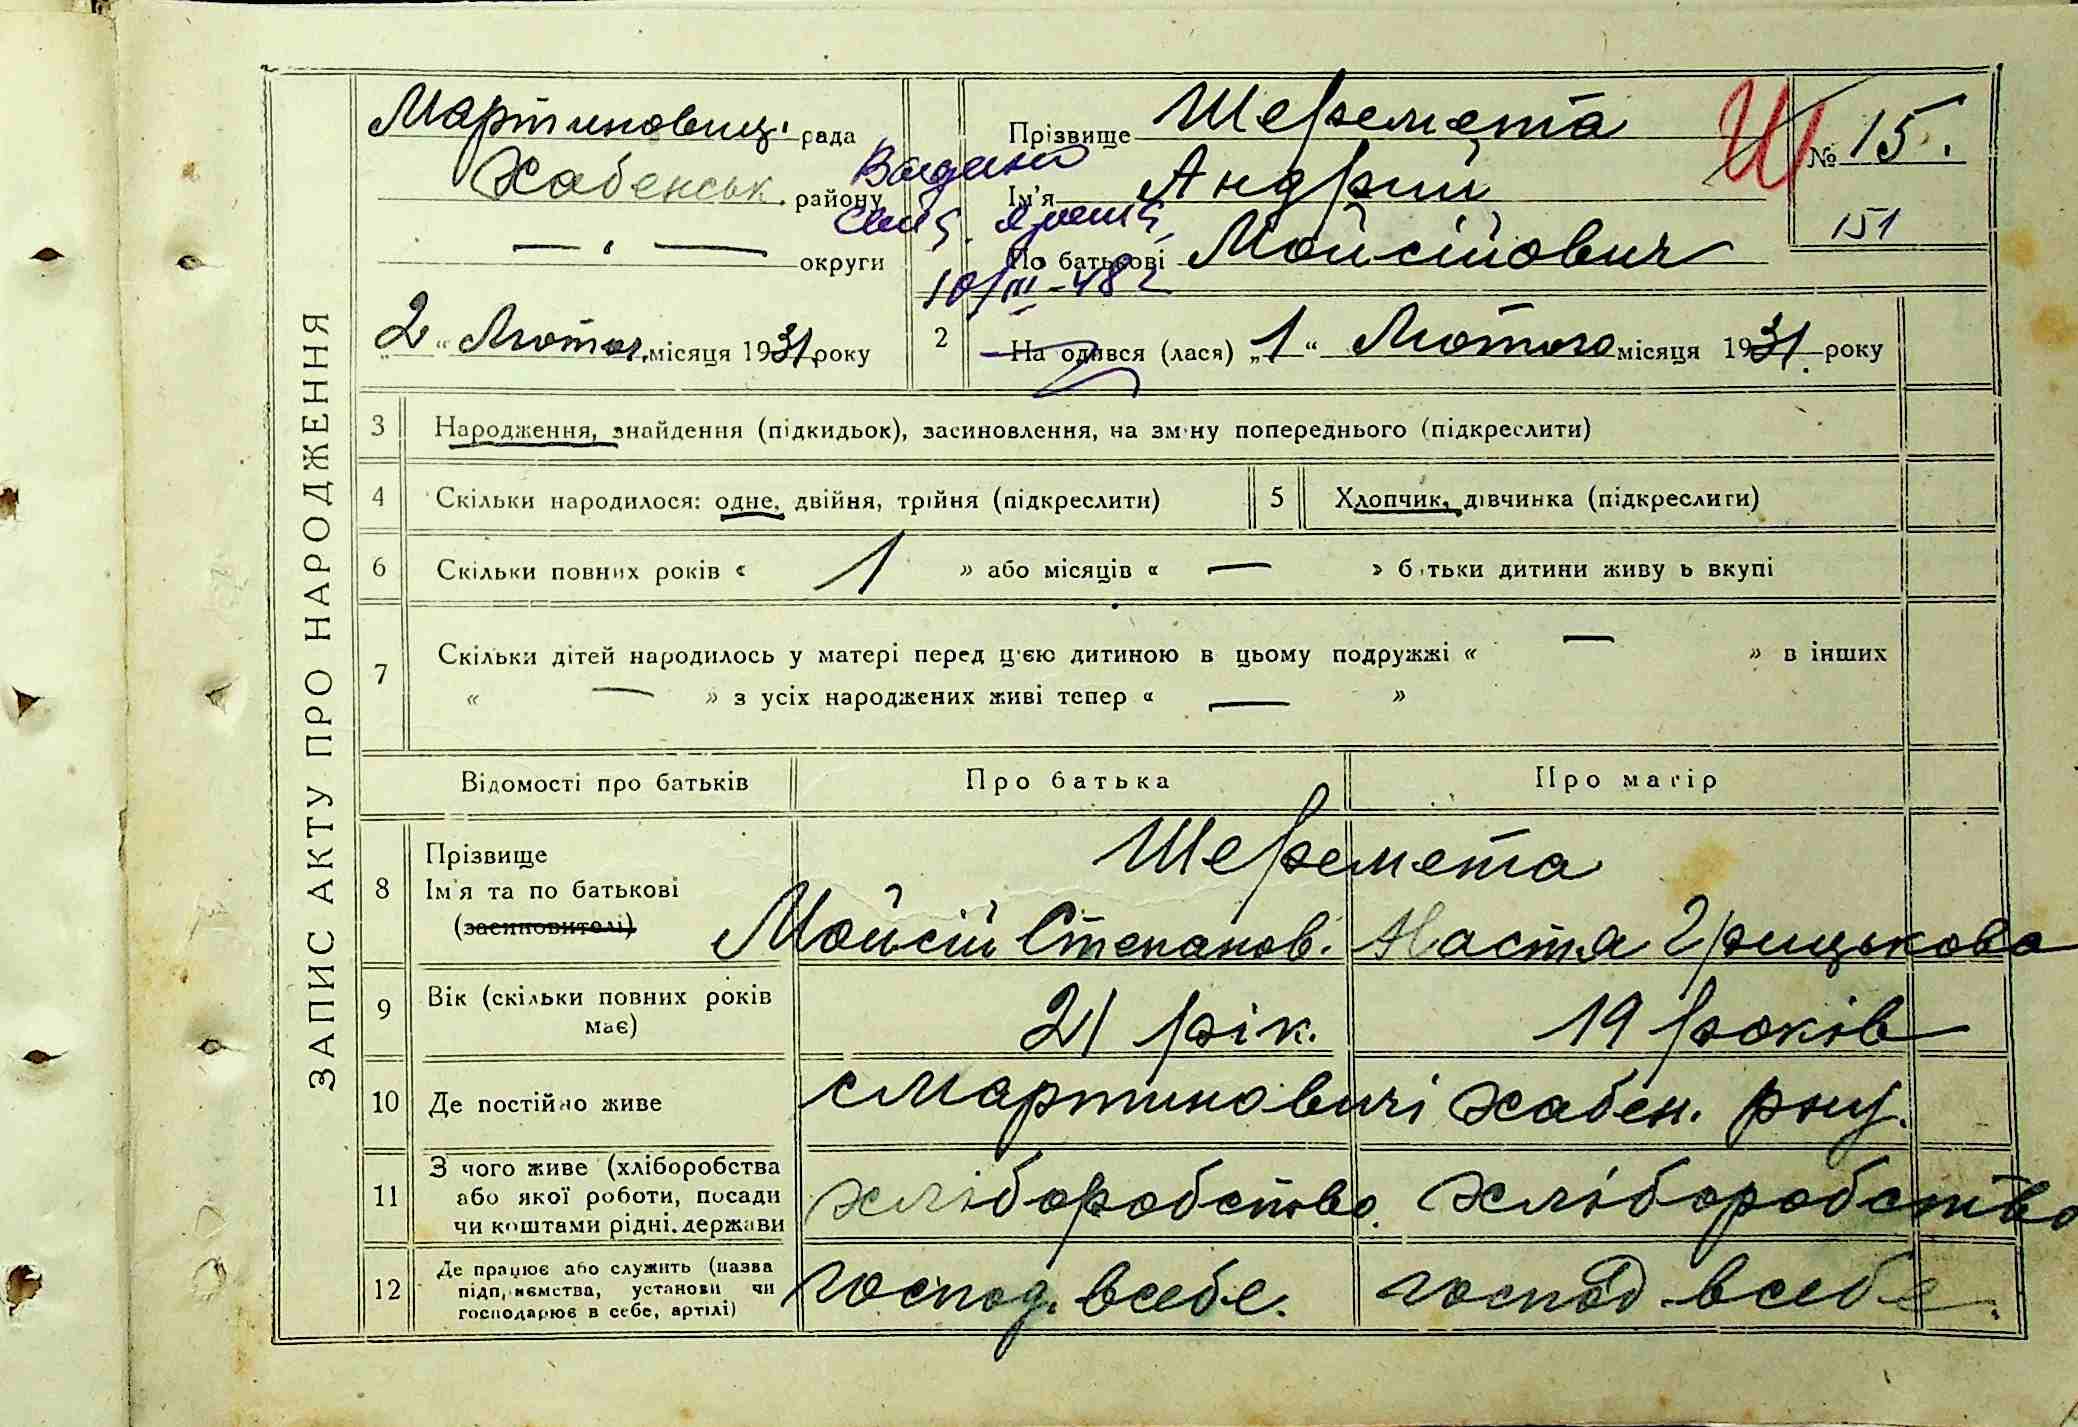 ЗАПИС АКТУ ПРО НАРОДЖЕННЯ
Мартинович. рада
Хабенськ. району
— " — округи
"2" Лютог. місяця 1931 року
Прізвище Шеремета
Ім'я Андрій
По батькові Мойсійович
Ш
№ 15.
151
Видано
10/III-48 г
2 На одився (лася) „1" Лютого місяця 1931. року
3 Народження, знайдення (підкидьок), засиновлення, на зміну попереднього (підкреслити)
4 Скільки народилося: одне, двійня, трійня (підкреслити)
5 Хлопчик, дівчинка (підкреслити)
6 Скільки повних років « 1 » або місяців « — » батьки дитини живуть вкупі
7 Скільки дітей народилось у матері перед цією дитиною в цьому подружжі « — » в інших
« — » з усіх народжених живі тепер « — »
Відомості про батьків Про батька Про матір
8 Прізвище
Ім'я та по батькові
(засиновителі)
Шеремета
Мойсій Степанов. Настя Грицькова
9 Вік (скільки повних років
має)
21 рік. 19 років
10 Де постійно живе
с Мартиновичі Хабен. рну.
11 З чого живе (хліборобства
або якої роботи, посади
чи коштами рідні, держави
хліборобство. хліборобство
12 Де працює або служить (назва
підприємства, установи чи
господарює в себе, артілі)
господ. всебе. господ. всебе.